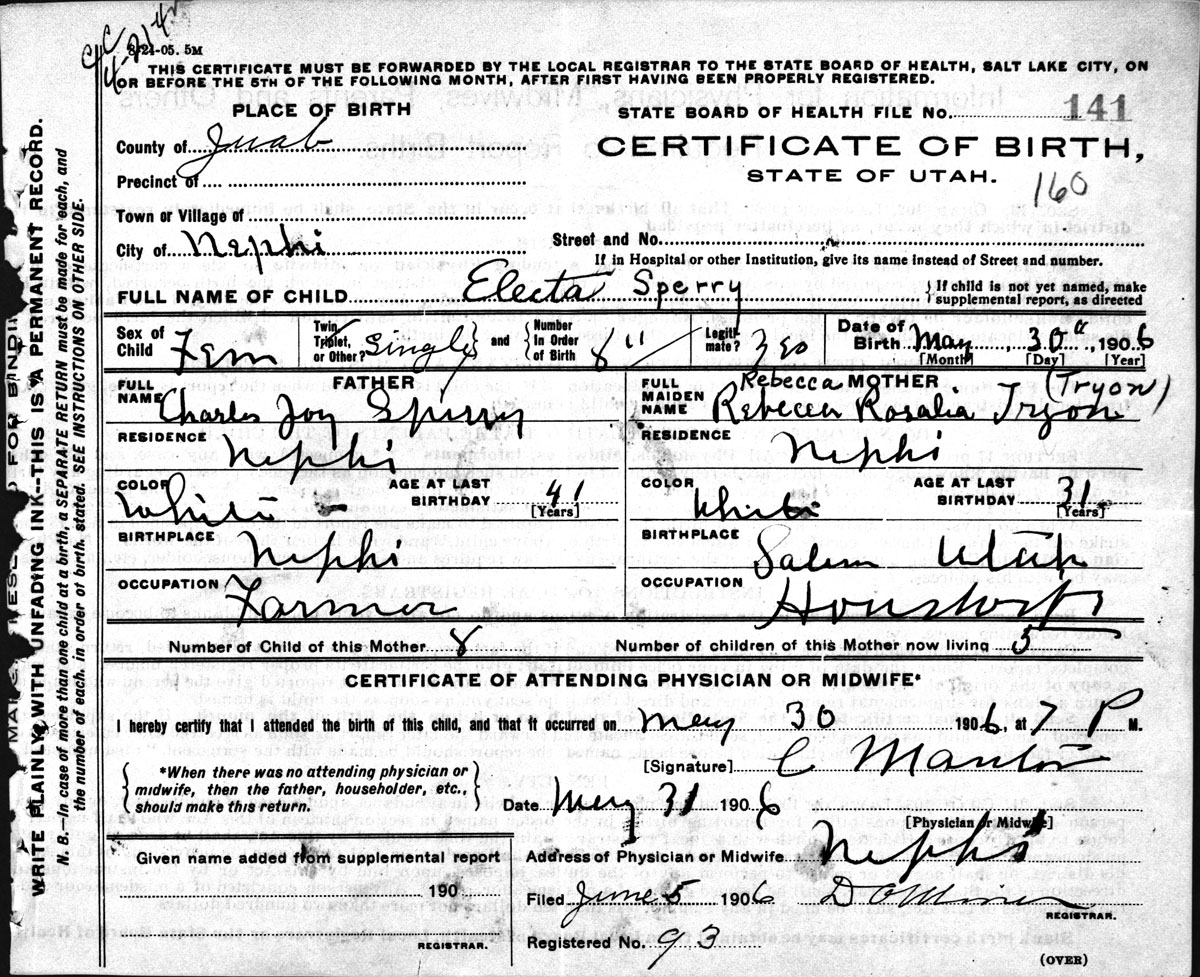 8/21-05. 5M
THIS CERTIFICATE MUST BE FORWARDED BY THE LOCAL REGISTRAR TO THE STATE BOARD OF HEALTH, SALT LAKE CITY, ON
OR BEFORE THE 5TH OF THE FOLLOWING MONTH, AFTER FIRST HAVING BEEN PROPERLY REGISTERED.
PLACE OF BIRTH
STATE BOARD OF HEALTH FILE No. 141
County of Juab
CERTIFICATE OF BIRTH,
Precinct of
STATE OF UTAH.
160
Town or Village of
City of Nephi
Street and No.
If in Hospital or other Institution, give its name instead of Street and number.
FULL NAME OF CHILD Electa Sperry { If child is not yet named, make supplemental report, as directed
Sex of Child Fem
Twin Triplet, or Other? Single } and { Number In Order of Birth 8"
Legitimate? yes
Date of Birth May 30", 1906
[Month] [Day] [Year]
FATHER
FULL NAME Charles Joy Sperry
Rebecca MOTHER (Tryon)
FULL MAIDEN NAME Rebecca Rosalia Tryon
RESIDENCE Nephi
RESIDENCE Nephi
COLOR White AGE AT LAST BIRTHDAY 41 [Years]
COLOR White AGE AT LAST BIRTHDAY 31 [Years]
BIRTHPLACE Nephi
BIRTHPLACE Salem Utah
OCCUPATION Farmer
OCCUPATION Housewife
Number of Child of this Mother 8
Number of children of this Mother now living 5
CERTIFICATE OF ATTENDING PHYSICIAN OR MIDWIFE*
I hereby certify that I attended the birth of this child, and that it occurred on May 30 1906, at 7 P M.
{ *When there was no attending physician or midwife, then the father, householder, etc., should make this return. }
[Signature] C
Date May 31 1906
[Physician or Midwife]
Given name added from supplemental report
190
REGISTRAR.
Address of Physician or Midwife Nephi
Filed June 5 1906
REGISTRAR.
Registered No. 93
(OVER)
WRITE PLAINLY WITH UNFADING INK--THIS IS A PERMANENT RECORD.
N. B.—In case of more than one child at a birth, a SEPARATE RETURN must be made for each, and
the number of each, in order of birth, stated. SEE INSTRUCTIONS ON OTHER SIDE.